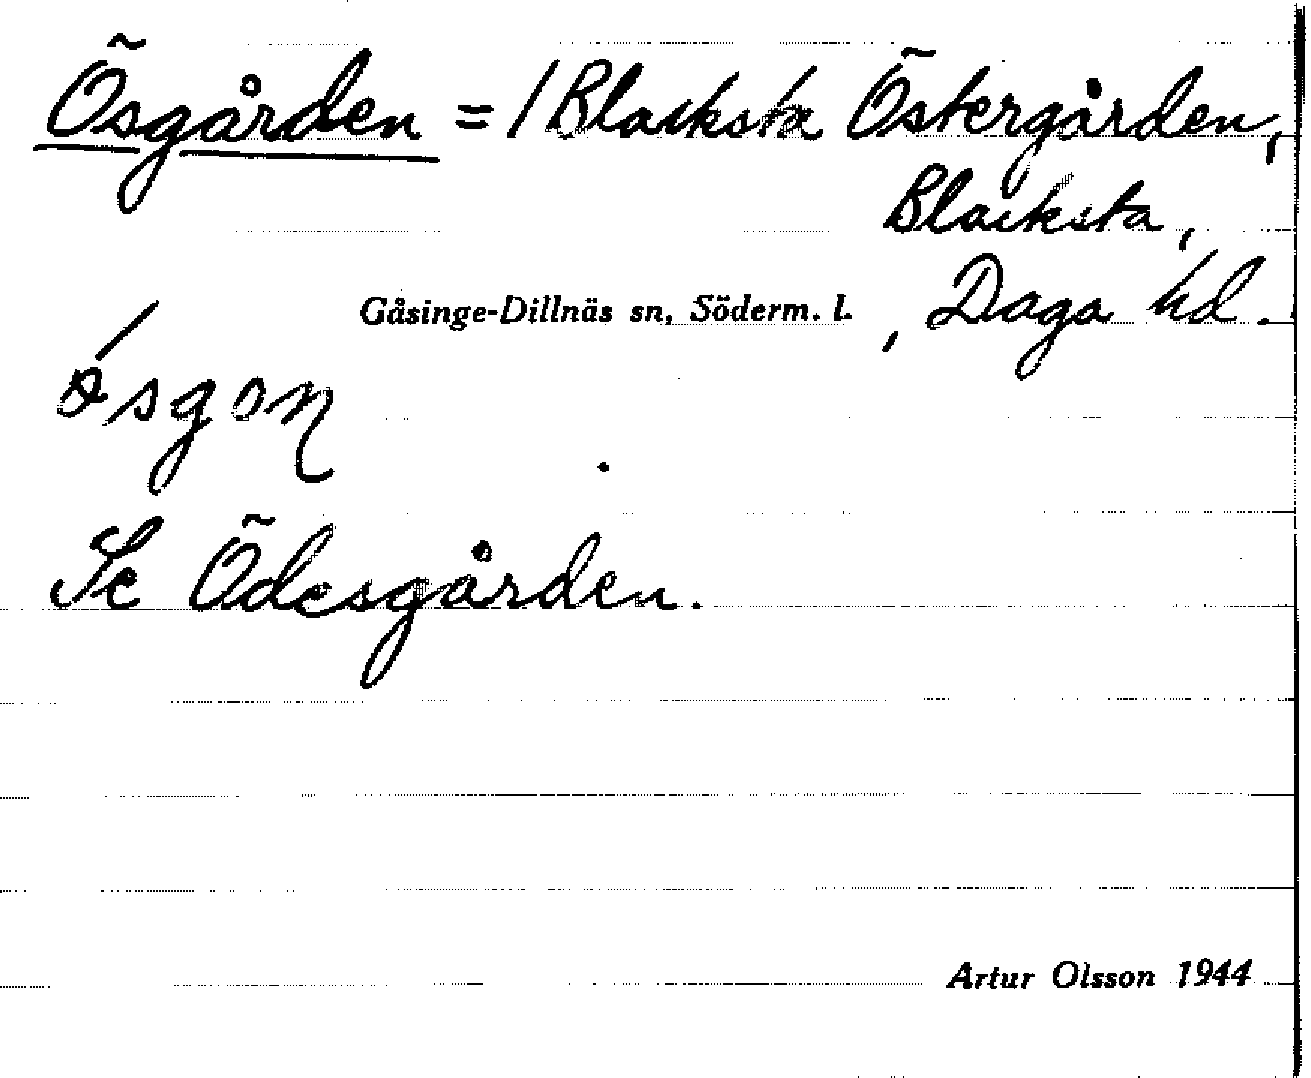 Ösgården = / Blacksta Östergården,
Blacksta,
Gåsinge-Dillnäs sn, Söderm. l. , Daga hd.
Se Ödesgården.
Artur Olsson 1944